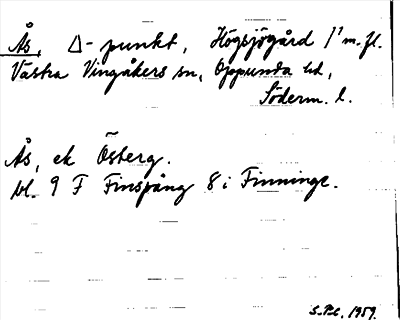 Ås, Δ-punkt, Högsjögård 1¹ m. fl.
Västra Vingåkers sn, Oppunda hd,
Söderm. l.
Ås, ek Österg.
bl. 9 F Finspång 8 i Finninge.
1959.